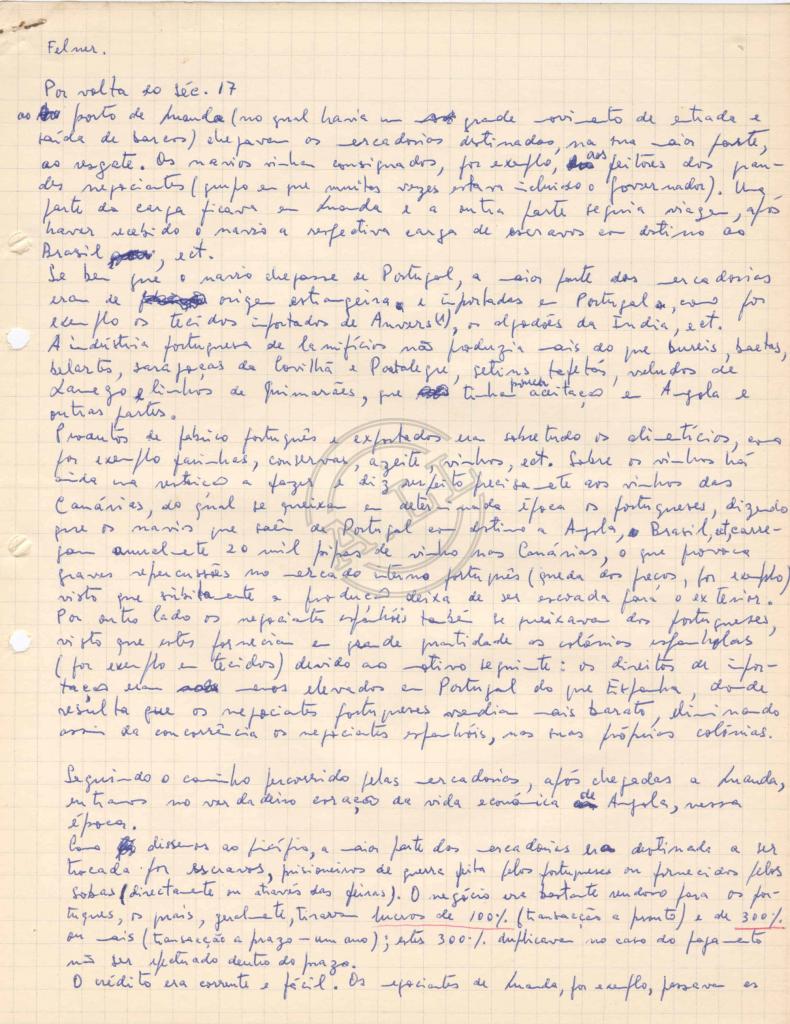 Felner.
Por volta do séc. 17
ao porto de Luanda (no qual havia um grande movimento de entrada e
saída de barcos) chegavam as mercadorias destinadas, na sua maior parte,
ao resgate. Os navios vinham consignados, por exemplo, aos feitores dos gran-
des negociantes (grupo em que muitas vezes estava incluido o Governador). Uma
parte da carga ficava em Luanda e a outra parte seguia viagem, após
haver recebido o navio a respectiva carga de escravos com destino ao
Brasil, ect.
Se bem que o navio chegasse de Portugal, a maior parte das mercadorias
eram de origem estrangeira, e importadas em Portugal, como por
exemplo os tecidos importados de Anvers(1), os algodões da India, ect.
A indústria portuguesa de lanifícios não produzia mais do que buréis, baetas,
belartes, saragoças da Covilhã e Portalegre, setins tafetás, veludos de
Lamego e linhos de Guimarães, que tinham pouca aceitação em Angola e
outras partes.
Produtos de fabrico português e exportados eram sobretudo os alimentícios, como
por exemplo farinhas, conservas, azeite, vinhos, ect. Sobre os vinhos há
ainda uma restrição a fazer e diz respeito precisamente aos vinhos das
Canárias, do qual se queixam em determinada época os portugueses, dizendo
que os navios que saem de Portugal com destino a Angola, Brasil, etc, carre-
gam anualmente 20 mil pipas de vinho nas Canárias, o que provoca
graves repercussões no mercado interno português (queda dos preços, por exemplo)
visto que subitamente a produção deixa de ser escoada para o exterior.
Por outro lado os negociantes espanhóis também se queixavam dos portugueses,
visto que estes forneciam em grande quantidade as colónias espanholas
(por exemplo em tecidos) devido ao motivo seguinte: os direitos de impor-
tação eram menos elevados em Portugal do que Espanha, donde
resulta que os negociantes portugueses vendiam mais barato, eliminando
assim da concorrência os negociantes espanhóis, nas suas próprias colónias.
Seguindo o caminho percorrido pelas mercadorias, após chegadas a Luanda,
entramos no verdadeiro coração da vida económica de Angola, nessa
época.
Como dissemos ao princípio, a maior parte das mercadorias era destinada a ser
trocada por escravos, prisioneiros de guerra feita pelos portugueses ou fornecidos pelos
sobas (directamente ou através das feiras). O negócio era bastante rendoso para os por-
tugueses, os quais, geralmente, tiravam lucros de 100% (transacção a pronto) e de 300%
ou mais (transacção a prazo – um ano); estes 300% duplicavam no caso do pagamento
não ser efectuado dentro do prazo.
O crédito era corrente e fácil. Os negociantes de Luanda, por exemplo, passavam as